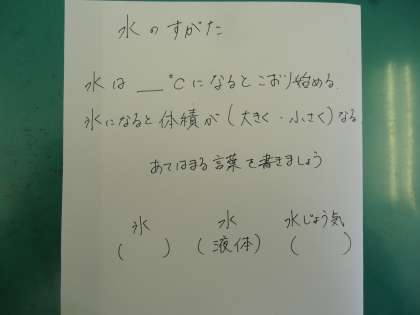 水のすがた
水は__℃になるとこおり始める.
氷になると体積が(大きく・小さく)なる.
あてはまる言葉を書きましょう
氷 水 水じょう気
( ) (液体) ( )